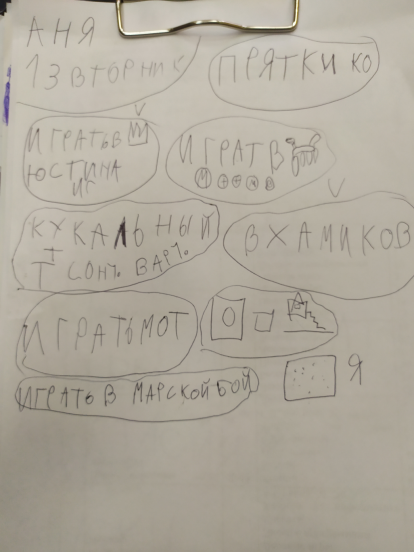 АНЯ
13 ВТОРНИК
ПРЯТКИ КО
ИГРАТЬ В
ЮСТИНА
ИГ
ИГРАТ В
КУКАЛЬНЫЙ
Т СОНЪ ВАРЪ
В ХАМИКОВ
ИГРАТЬ МОТ
ИГРАТЬ В МАРСКОЙ БОЙ
Я